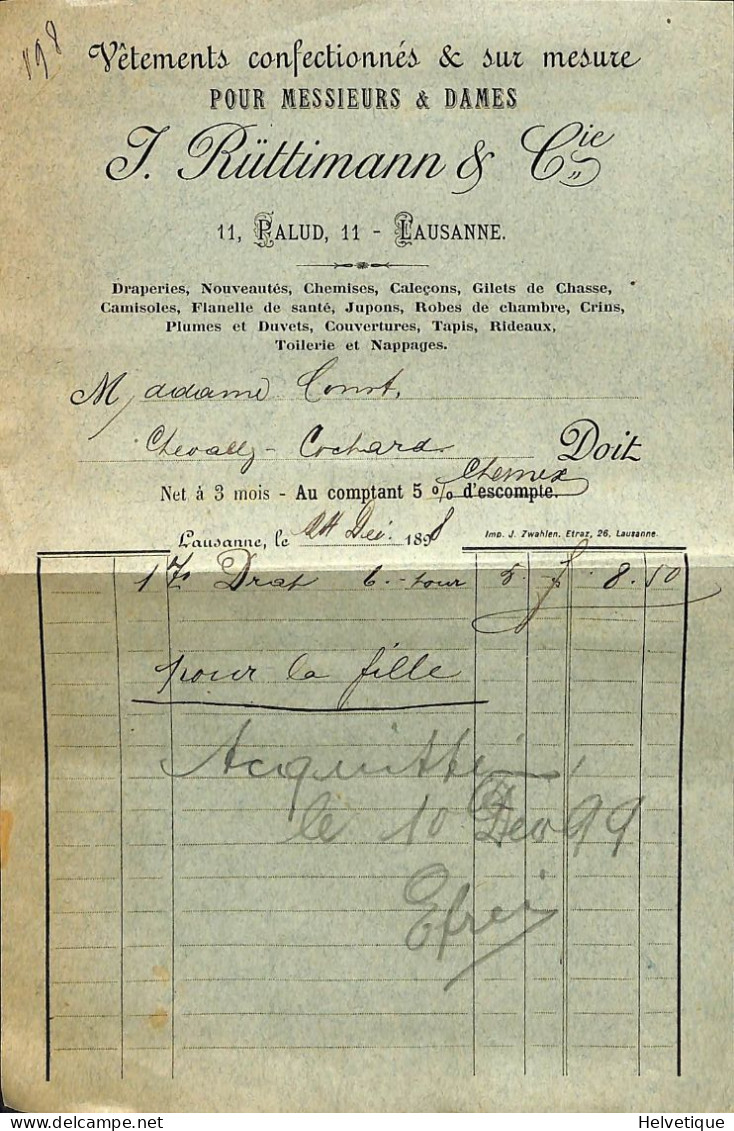 198
Vêtements confectionnés & sur mesure
POUR MESSIEURS & DAMES
J. Rüttimann & Cie
11, PALUD, 11 - LAUSANNE.
Draperies, Nouveautés, Chemises, Caleçons, Gilets de Chasse,
Camisoles, Flanelle de santé, Jupons, Robes de chambre, Crins,
Plumes et Duvets, Couvertures, Tapis, Rideaux,
Toilerie et Nappages.
Madame
Cochard Doit
Chernex
Net à 3 mois - Au comptant 5 % d'escompte.
Lausanne, le 24 Dec. 1898
Imp. J. Zwahlen, Etraz, 26, Lausanne.
1 Drap 5. 8.50
pour la fille
Acquitté
le 10 99